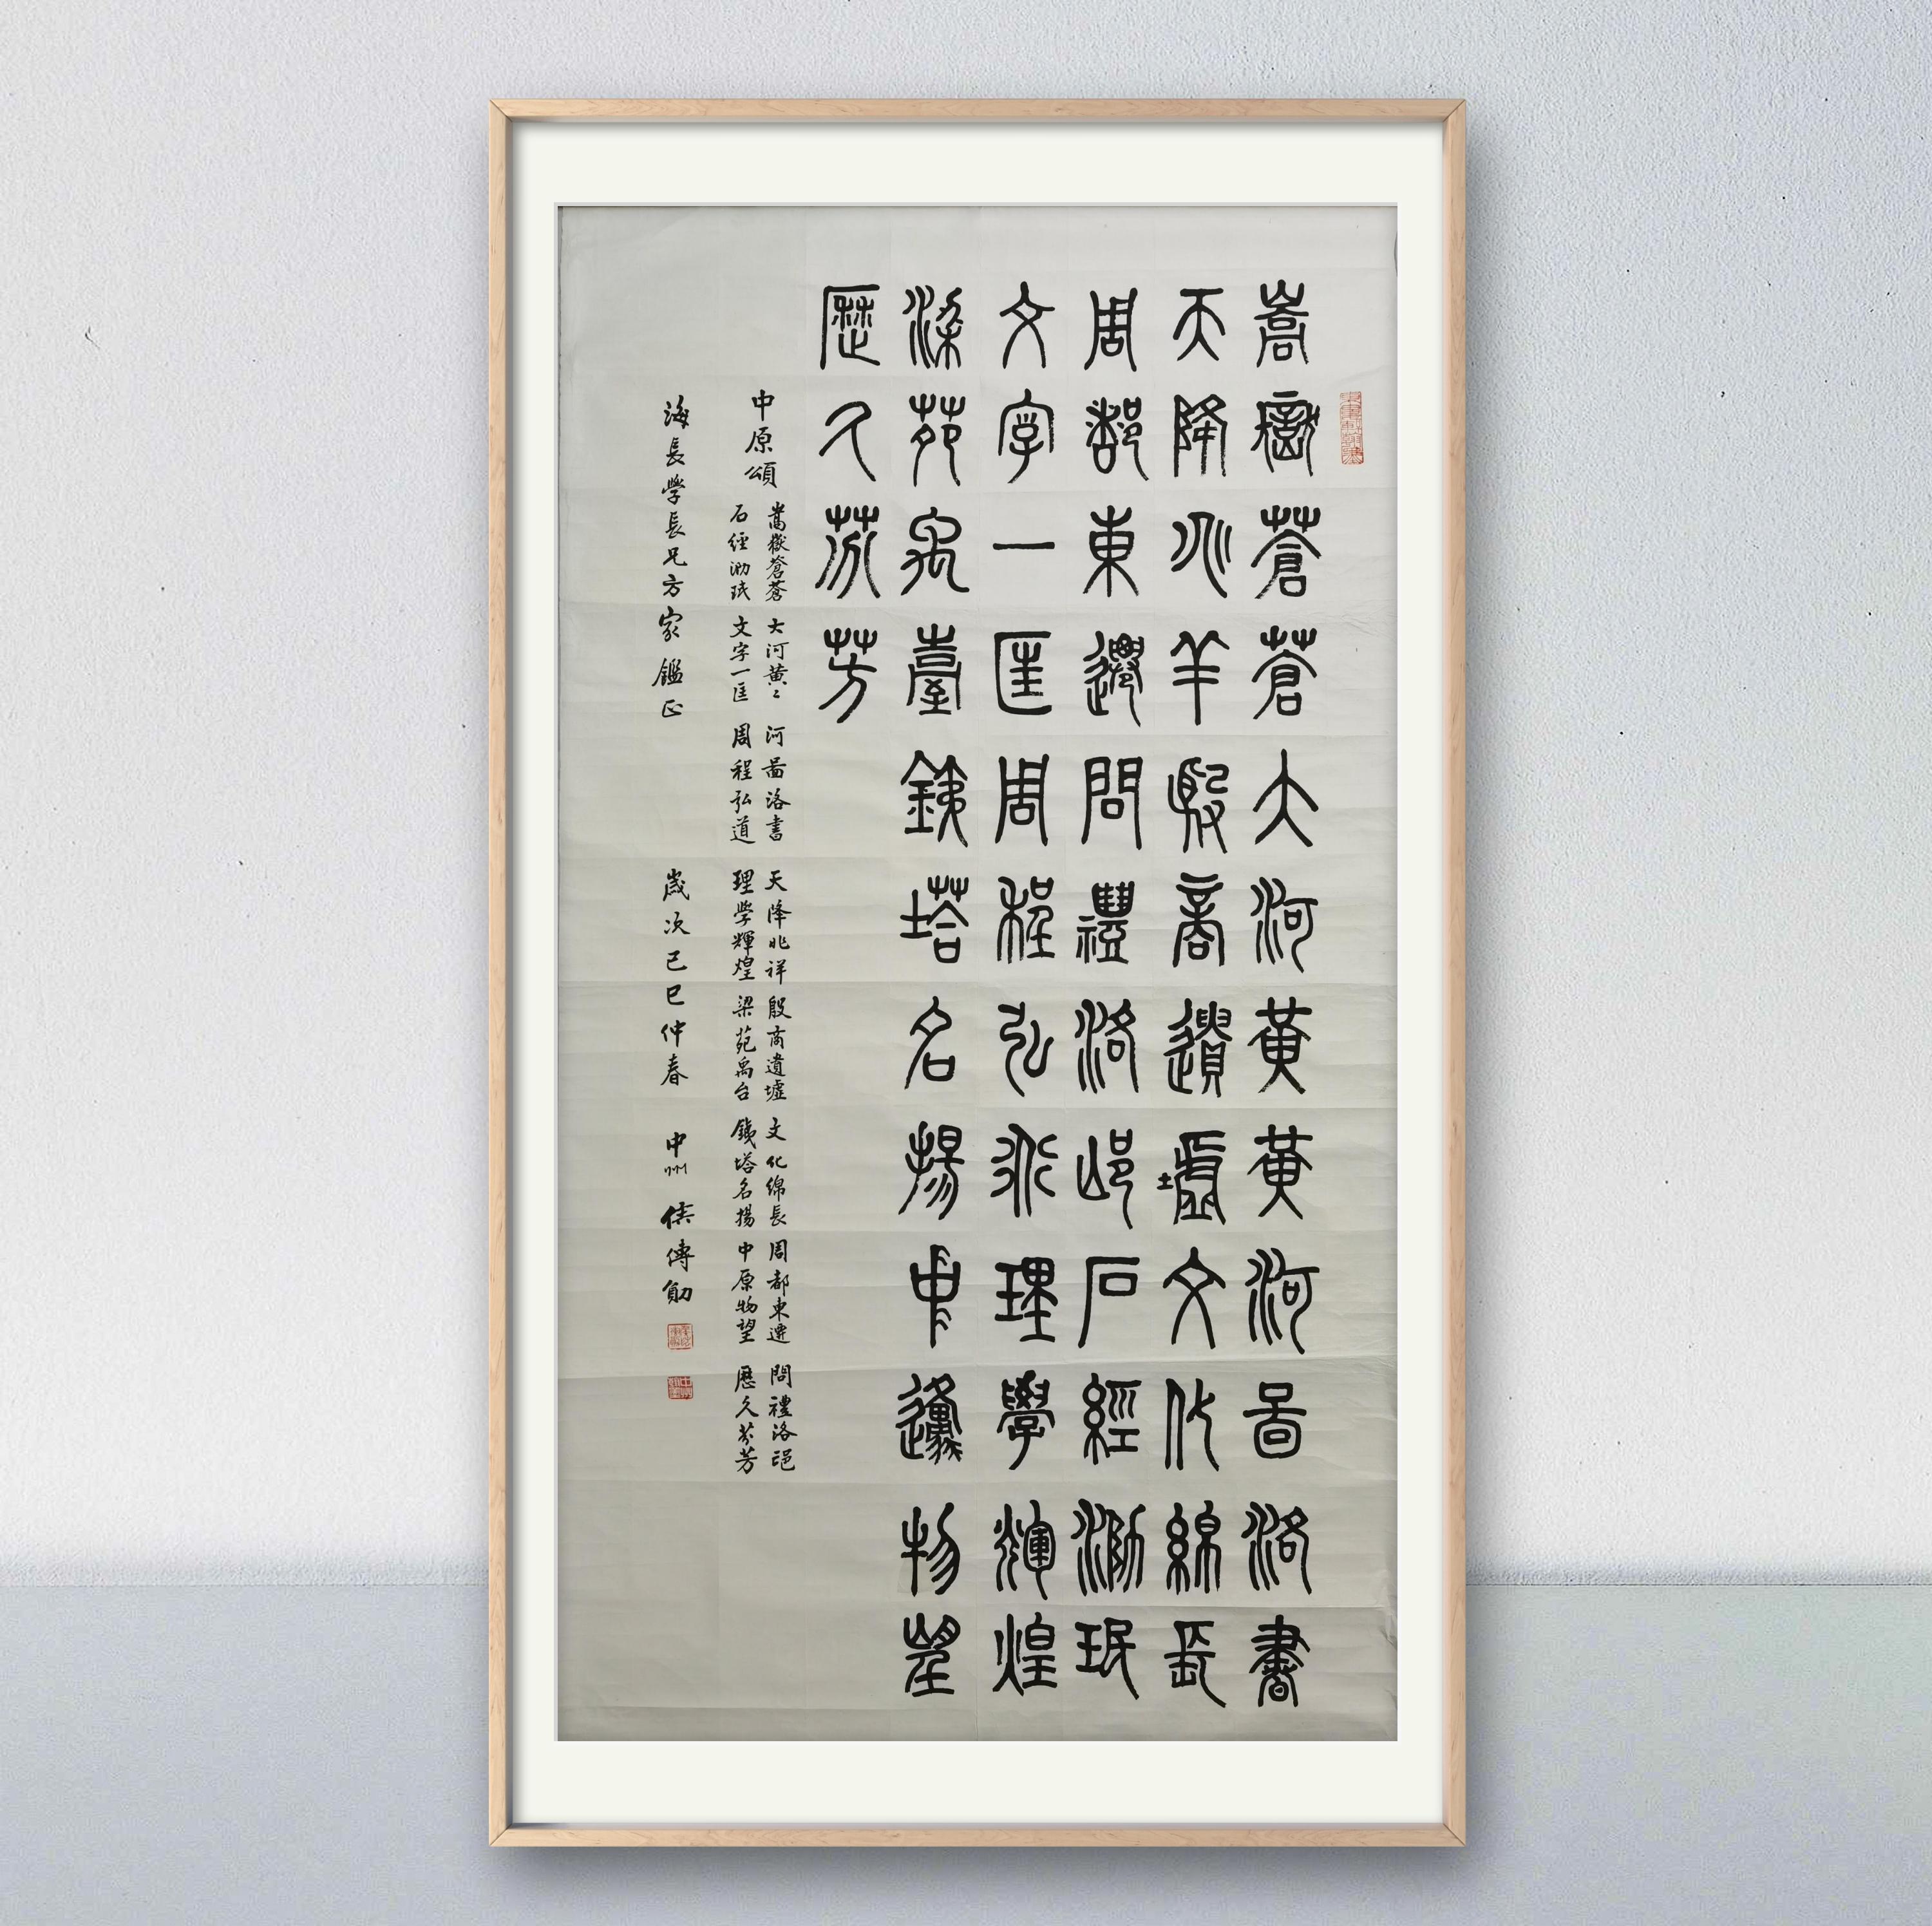 嵩嶽蒼蒼大河黃黃河啚洛書
天降兆羊殷商遺墟文化綿長
周都東遷問禮洛邑石經泐珉
文字一匡周程弘道理學輝煌
梁苑禹臺鐵塔名揚中原物望
歷久芬芳
中原頌
嵩嶽蒼蒼 大河黃〻 河啚洛書 天降兆祥 殷商遺墟 文化綿長 周都東遷 問禮洛邑
石經泐珉 文字一匡 周程弘道 理學輝煌 梁苑禹台 鐵塔名揚 中原物望 歷久芬芳
海長學長兄方家鑑正 歲次己巳仲春 中州 侯傳勛